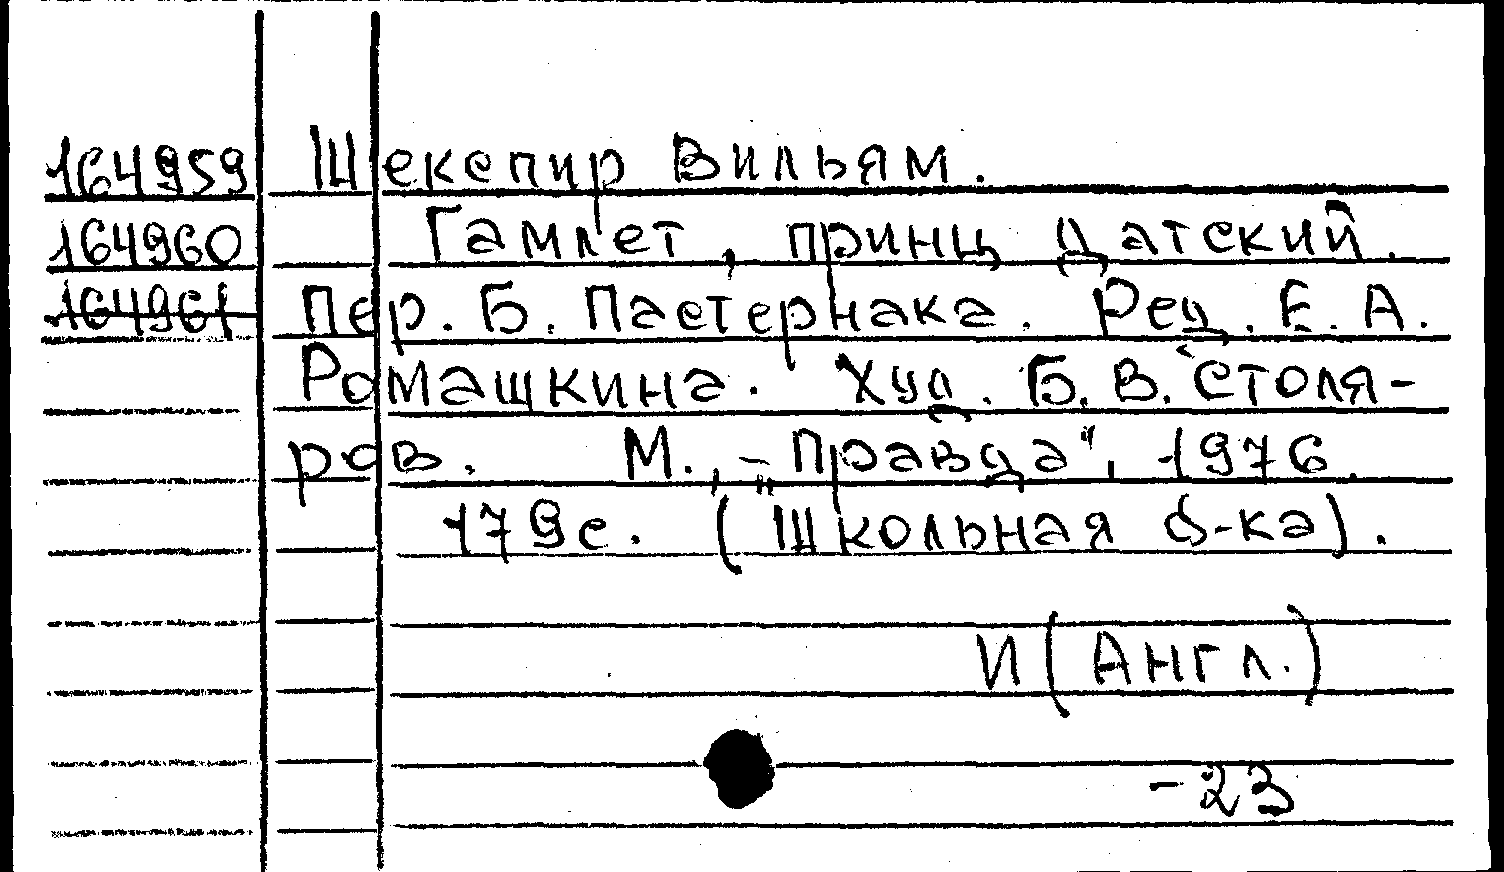 164959 Шекспир Вильям.
164960 Гамлет, принц Датский.
164961 Пер. Б. Пастернака. Рец. Е. А.
Ромашкина. Худ. Б. В. Столя-
ров. М., „Правда", 1976.
179с. (Школьная б-ка).
И(Англ.)
-23